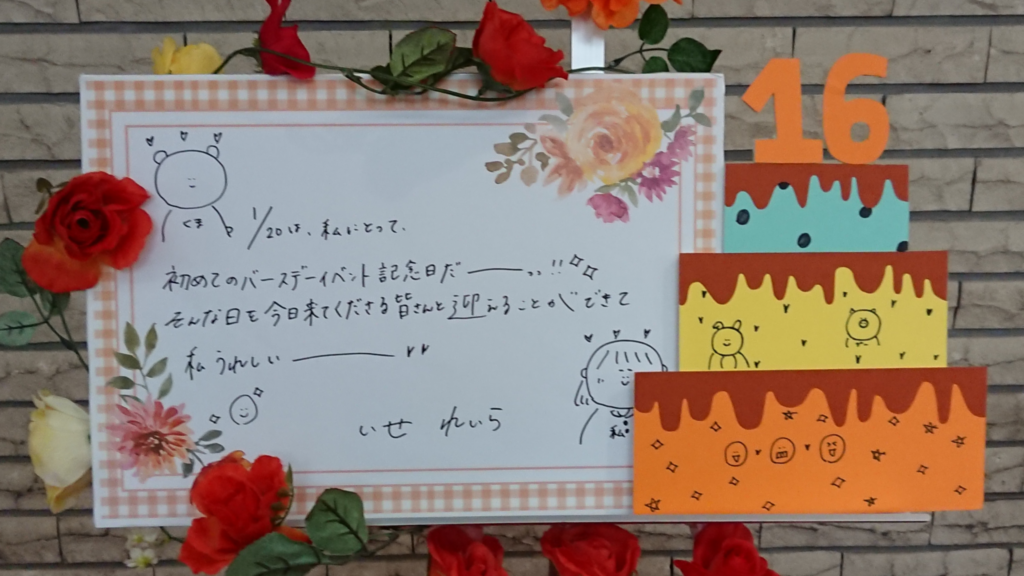 16
くま
1/20は、私にとって、
初めてのバースデーイベント記念日だ――〟!!
そんな日を今日来てくださる皆さんと迎えることができて
私うれしい――
いせ れいら
私